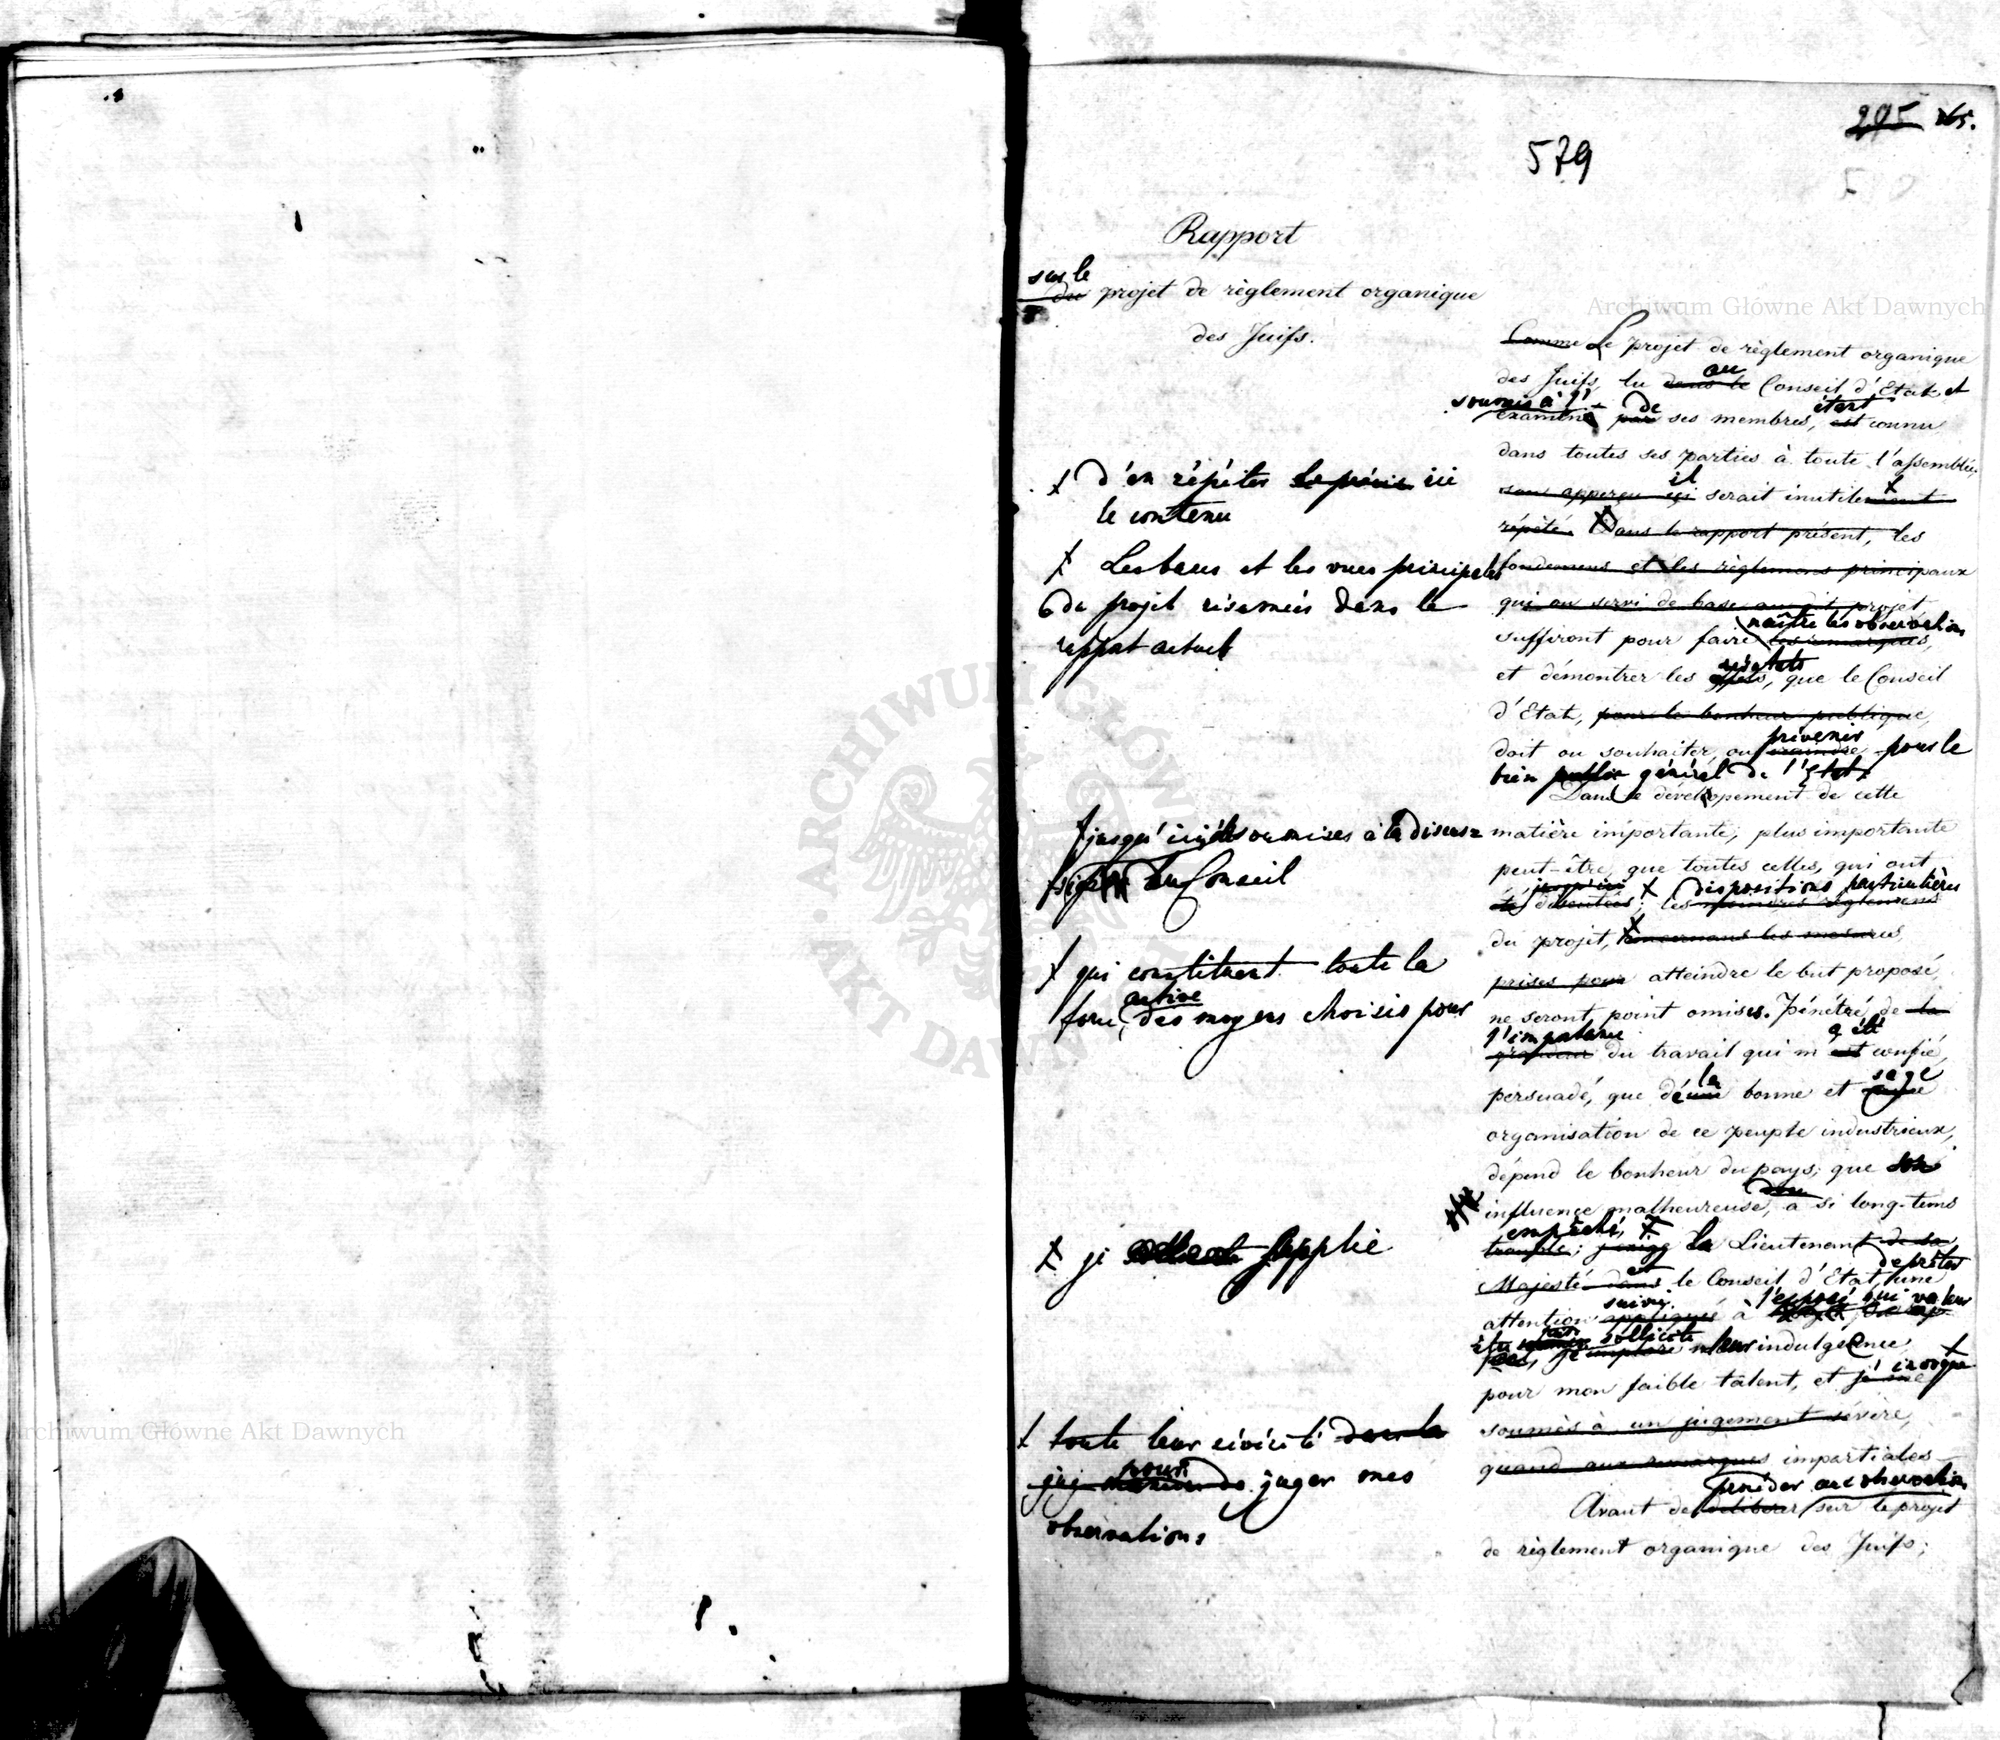 295 265.
579
Rapport
sur le
du projet de règlement organique
des Juifs.
Archiwum Główne Akt Dawnych
Comme Le projet de règlement organique
au
des Juifs, lu dans le Conseil d'Etat et
soumis à l' de étant
examiné par ses membres, est connu
dans toutes ses parties à toute l'assemblée,
il
son apperçu ici serait inutilement
répété. Dans le rapport présent, les
fondemens et les règlemens principaux
qui ou servi de base au dit projet,
naître les observations
suffiront pour faire les remarques,
résultats
et démontrer les effets, que le Conseil
d'Etat, pour le bonheur publique,
prévenir
doit ou souhaiter, ou craindre pour le
bien public général de l'Etat.
Dans le dévelopement de cette
matière importante, plus importante
peut-être, que toutes celles, qui ont
jusqu'ici dispositions particulières
été discutées; les règlemens
du projet, concernans les mesures
prises pour atteindre le but proposé,
ne seront point omises. Pénétré de la
l'importance a été
grandeur du travail qui m'est confié,
la sage
persuadé, que de une bonne et
organisation de ce peuple industrieux,
dépend le bonheur du pays; que son
influence malheureuse, a si long-tems
empêché,
la Lieutenant de sa
et de prêter
Majesté dans le Conseil d'Etat, une
suivie. l'exposé qui va leur
attention appliquée à
être sollicite
j'implore leur indulgence
j'invoque
pour mon faible talent, et je me
soumès à un jugement sévère,
quand aux remarques impartiales
procéder aux observations
Avant de déliberer sur le projet
de règlement organique des Juifs;
d'en répéter le précis ici
le contenu
Les bases et les vues principales
du projet résumées dans le
rapport actuel
jusqu'ici été soumises à la discus=
sion du Conseil
qui constituent toute la
active
force, des moyens choisis pour
je supplie
toute leur sévérité dans la
pour
jug manière de juger mes
observations
ARCHIWUM GŁÓWNE
AKT DAWNYCH
Archiwum Główne Akt Dawnych